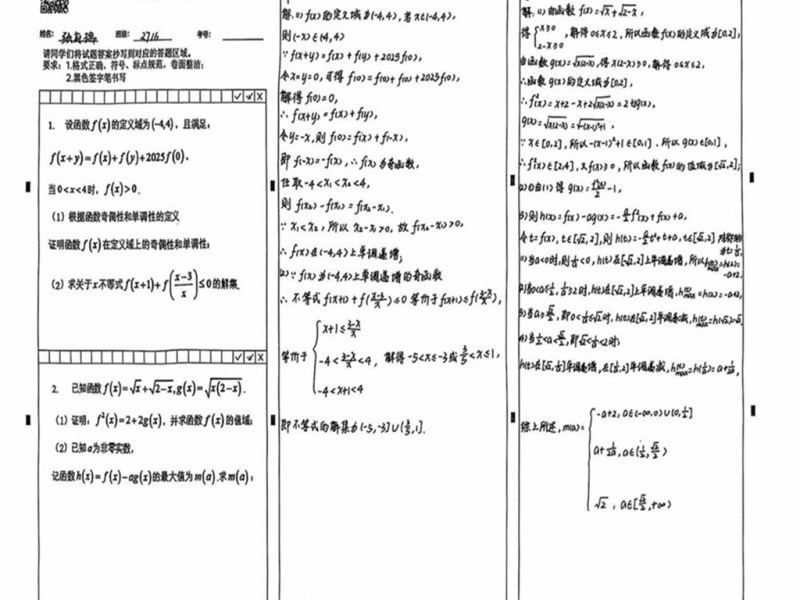 姓名: 班级: 2716 考号:
请同学们将试题答案抄写到对应的答题区域。
要求: 1.格式正确, 符号、标点规范, 卷面整洁;
2.黑色签字笔书写
1. 设函数 f(x) 的定义域为(-4,4), 且满足:
f(x+y)=f(x)+f(y)+2025f(0),
当 0<x<4 时, f(x)>0.
(1) 根据函数奇偶性和单调性的定义
证明函数 f(x) 在定义域上的奇偶性和单调性;
(2) 求关于x不等式 f(x+1)+f((x-3)/x)≤0 的解集.
2. 已知函数 f(x)=√x+√(2-x), g(x)=√(x(2-x)).
(1) 证明: f²(x)=2+2g(x), 并求函数 f(x) 的值域;
(2) 已知a为非零实数,
记函数 h(x)=f(x)-ag(x) 的最大值为 m(a).求 m(a);
解: (1) f(x)的定义域为(-4,4), 若x∈(-4,4),
则(-x)∈(4,4)
∵f(x+y)=f(x)+f(y)+2025f(0),
令x=y=0, 可得 f(0)=f(0)+f(0)+2025f(0),
解得f(0)=0,
∴f(x+y)=f(x)+f(y),
令y=-x, 则f(0)=f(x)+f(-x),
即f(-x)=-f(x), ∴f(x)为奇函数,
任取-4<x₁<x₂<4,
则f(x₂)-f(x₁)=f(x₂-x₁).
∵x₁<x₂, 所以x₂-x₁>0, 故f(x₂-x₁)>0,
∴f(x)在(-4,4)上单调递增;
(2) ∵f(x)为(-4,4)上单调递增的奇函数
∴不等式f(x+1)+f((x-3)/x)≤0 等价于f(x+1)≤f((3-x)/x),
等价于 { x+1≤(3-x)/x
-4<(3-x)/x<4, 解得-5<x≤-3或3/5<x≤1,
-4<x+1<4
即不等式的解集为(-5,-3]∪(3/5,1].
解: (1)由函数f(x)=√x+√(2-x),
得 { x≥0 2-x≥0, 解得0≤x≤2, 所以函数f(x)的定义域为[0,2];
由函数g(x)=√(x(2-x)), 得x(2-x)≥0, 解得0≤x≤2,
∴函数g(x)的定义域为[0,2],
∴f²(x)=x+2-x+2√(x(2-x))=2+2g(x),
g(x)=√(x(2-x))=√(-(x-1)²+1),
∵x∈[0,2], 所以-(x-1)²+1∈[0,1]. 所以g(x)∈[0,1],
∴f²(x)∈[2,4], 又f(x)≥0, 所以函数f(x)的值域为[√2,2];
(2)①由(1)得g(x)=f²(x)/2-1,
②则h(x)=f(x)-ag(x)=-a/2f²(x)+f(x)+a,
令t=f(x), t∈[√2,2], 则h(t)=-a/2t²+t+a, t∈[√2,2], 对称轴为t=1/a,
1)当a<0时, 则1/a<0, h(t)在[√2,2]上单调递增, 所以h(x)max=h(2)=-a+2,
2)当0<a≤1/2, 1/a≥2时, h(t)在[√2,2]上单调递增, h(x)max=h(2)=-a+2,
3)当a≥√2/2, 即0<1/a≤√2时, h(t)在[√2,2]单调递减, h(x)max=h(√2)=√2,
4)当1/2<a<√2/2, 即√2<1/a<2时:
h(t)在[√2,1/a]单调递增, 在[1/a,2]单调递减, h(x)max=h(1/a)=a+1/2a,
综上所述, m(a)= { -a+2, a∈(-∞,0)∪(0,1/2]
a+1/2a, a∈(1/2,√2/2)
√2, a∈[√2/2,+∞)